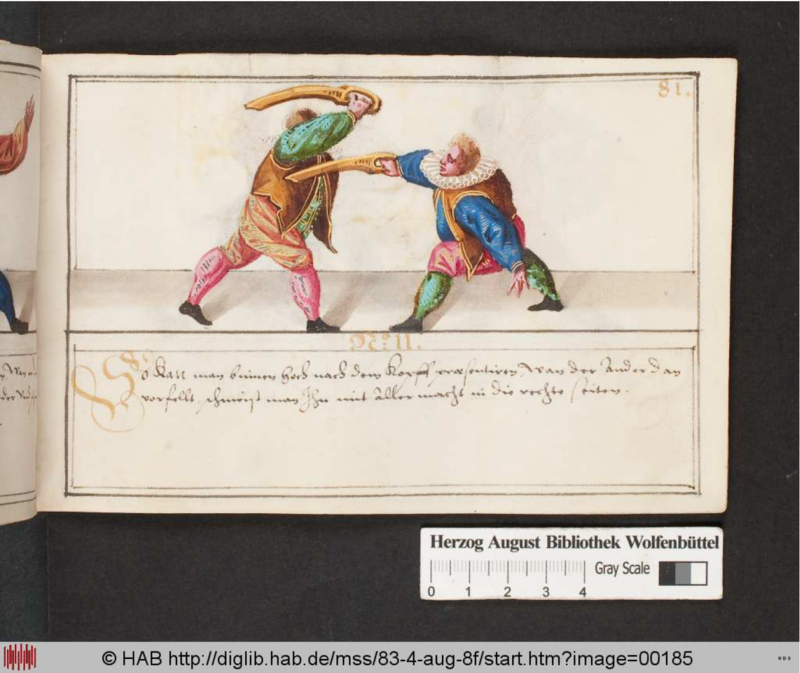 81.
No: 11.
So Kan man binnen hoch nach dem Kopff præsentiren, wan der Ander dan
vorfelt, schmeist man Ihn mit aller macht in die rechte seiten.
Herzog August Bibliothek Wolfenbüttel
Gray Scale
0 1 2 3 4
© HAB http://diglib.hab.de/mss/83-4-aug-8f/start.htm?image=00185